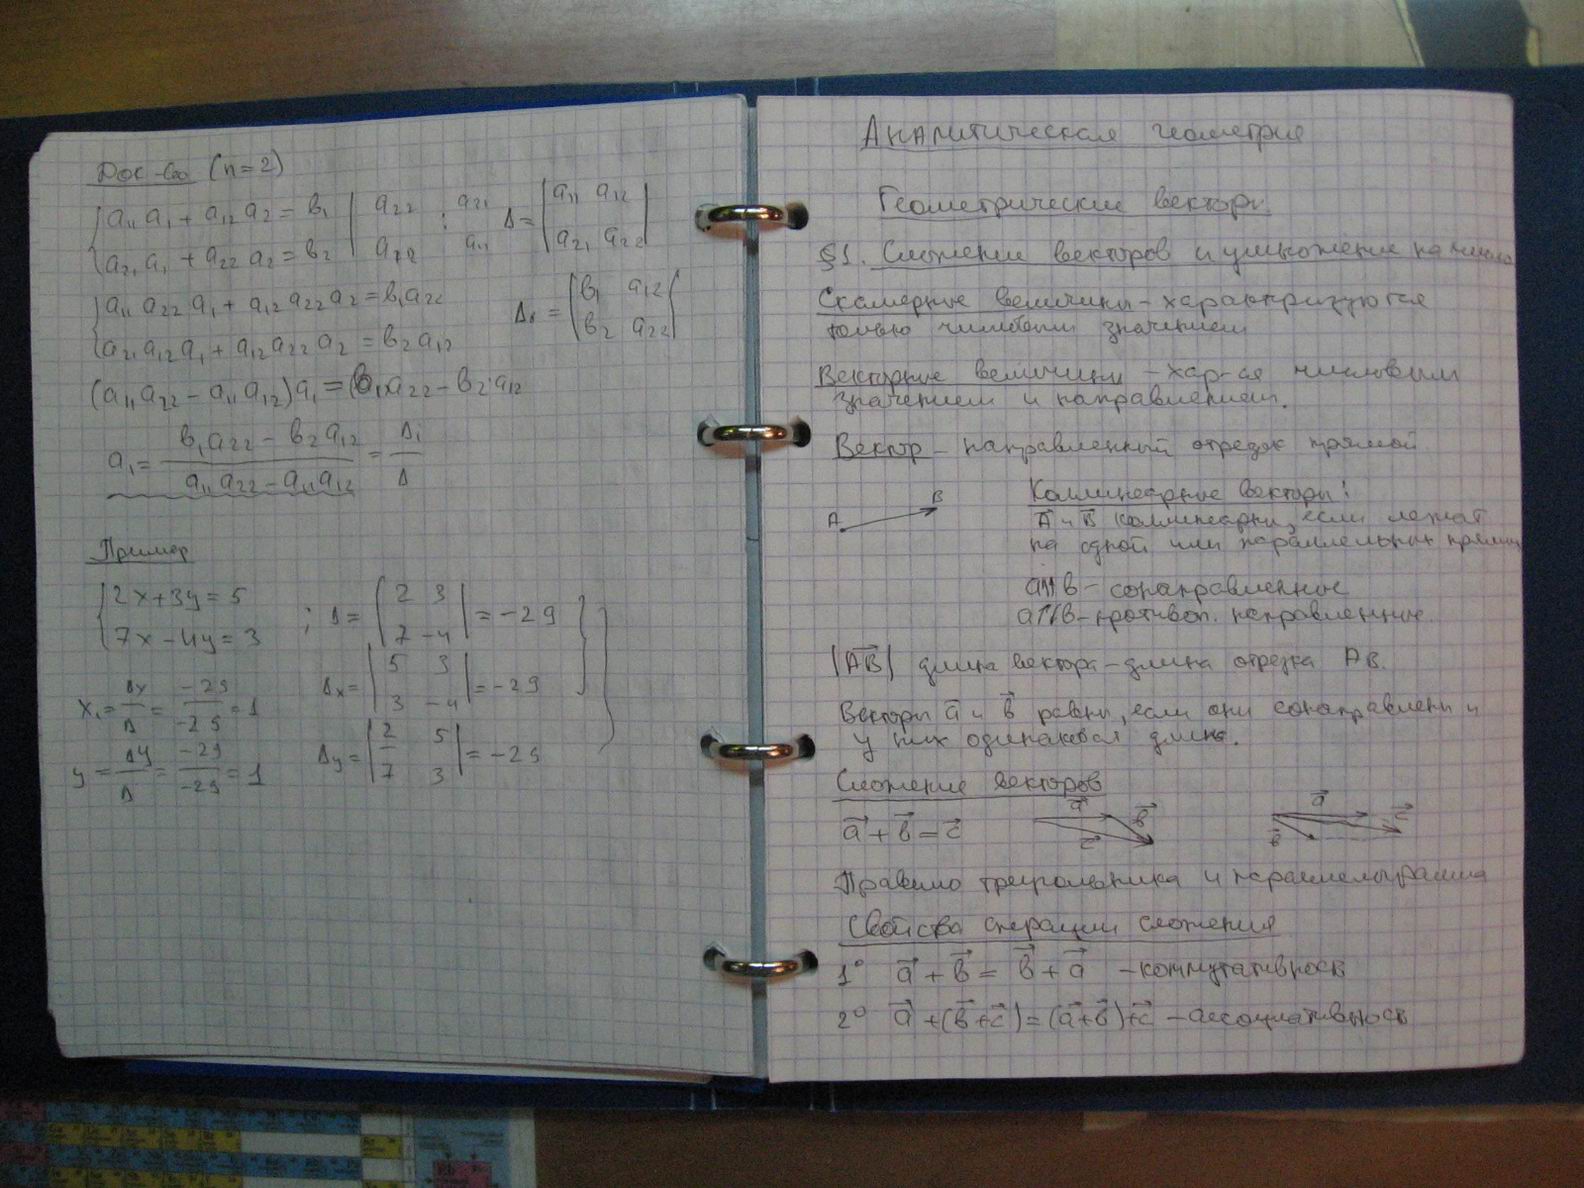 Док-во (n=2)
{ a₁₁ a₁ + a₁₂ a₂ = b₁ | a₂₂ ; a₂₁ Δ = | a₁₁ a₁₂ |
{ a₂₁ a₁ + a₂₂ a₂ = b₂ | a₂₂ a₁₁ | a₂₁ a₂₂ |
{ a₁₁ a₂₂ a₁ + a₁₂ a₂₂ a₂ = b₁ a₂₂ Δ₁ = | b₁ a₁₂ |
{ a₂₁ a₁₂ a₁ + a₁₂ a₂₂ a₂ = b₂ a₁₂ | b₂ a₂₂ |
(a₁₁ a₂₂ - a₁₁ a₁₂) a₁ = b₁ a₂₂ - b₂ a₁₂
a₁ = (b₁ a₂₂ - b₂ a₁₂) / (a₁₁ a₂₂ - a₁₁ a₁₂) = Δ₁ / Δ
Пример
{ 2x + 3y = 5 ; Δ = | 2 3 | = -29
{ 7x - 4y = 3 | 7 -4 |
x₁ = Δx / Δ = -29 / -29 = 1 Δx = | 5 3 | = -29
| 3 -4 |
y = Δy / Δ = -29 / -29 = 1 Δy = | 2 5 | = -29
| 7 3 |
Аналитическая геометрия
Геометрические вектора
§1. Сложение векторов и умножение на число
Скалярные величины - характризуются
только числовым значением
Векторные величины - хар-ся числовым
значением и направлением.
Вектор - направленный отрезок прямой
A B
Коллинеарные векторы:
A⃗ и B⃗ коллинеарны, если лежат
на одной или параллельных прямых
a↑↑b - сонаправленные
a↑↓b - противоп. направленные.
|A⃗B⃗| длина вектора - длина отрезка AB.
Векторы a⃗ и b⃗ равны, если они сонаправлены и
у них одинаковая длина.
Сложение векторов
a⃗ + b⃗ = c⃗ a⃗ b⃗ c⃗ a⃗ b⃗ c⃗
Правило треугольника и параллелограмма
Свойства операции сложения
1° a⃗ + b⃗ = b⃗ + a⃗ - коммутативность
2° a⃗ + (b⃗ + c⃗) = (a⃗ + b⃗) + c⃗ - ассоциативность